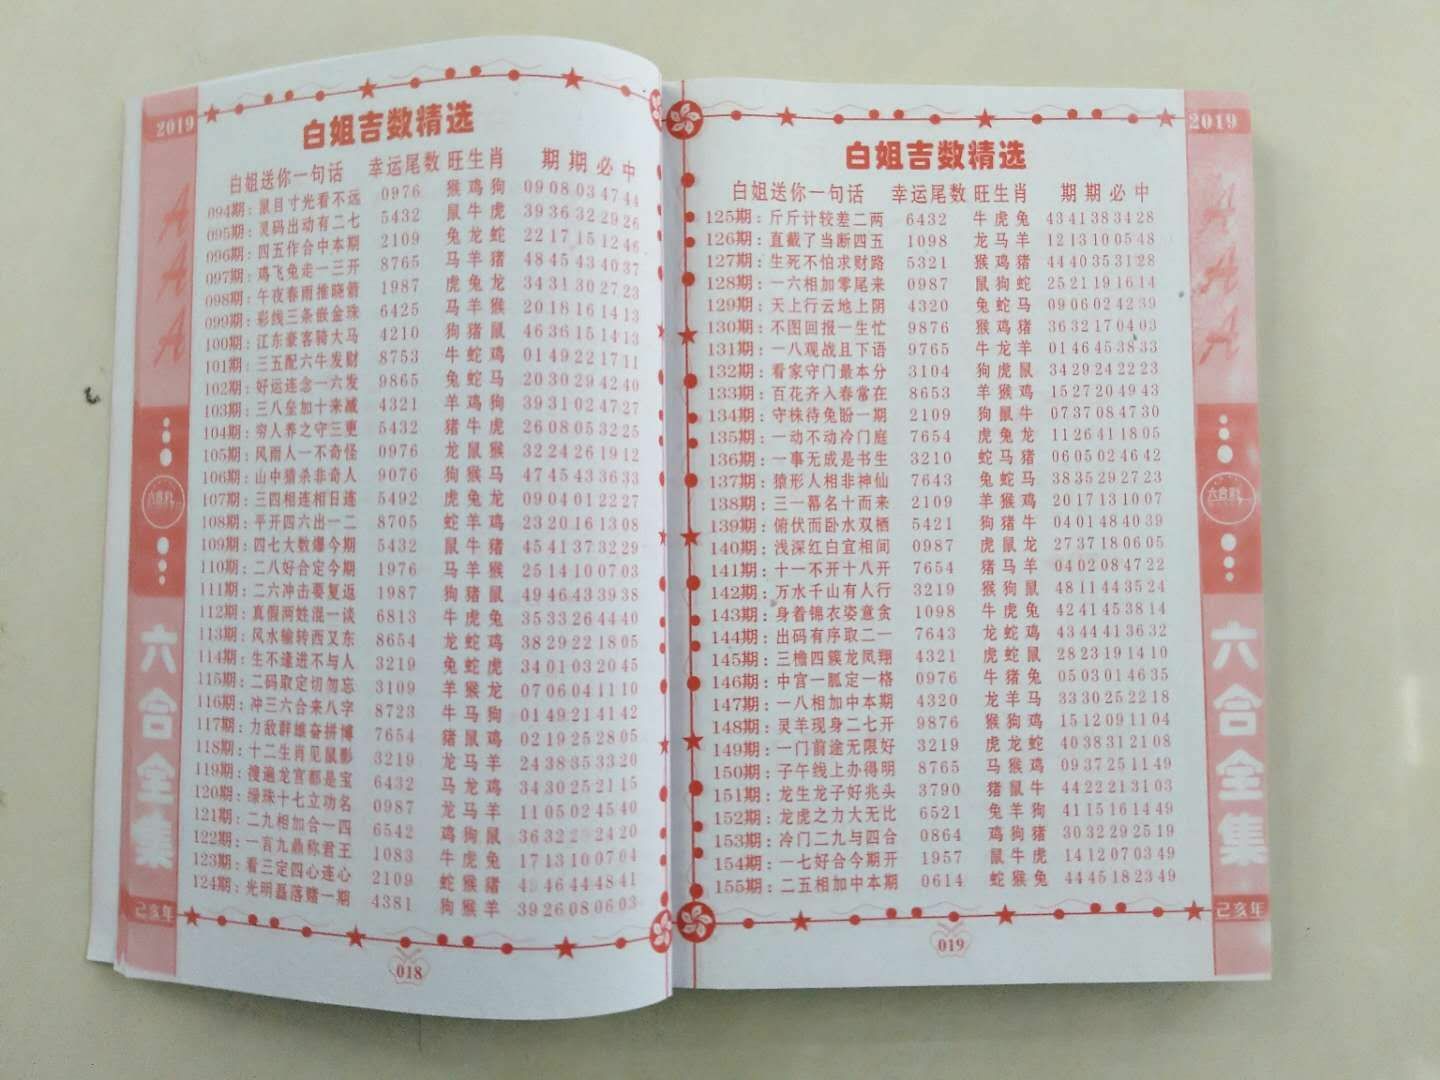 2019
白姐吉数精选
白姐送你一句话 幸运尾数 旺生肖 期期必中
094期：鼠目寸光看不远 0976 猴鸡狗 09 08 03 47 44
095期：灵码出动有二七 5432 鼠牛虎 39 36 32 29 26
096期：四五作合中本期 2109 兔龙蛇 22 17 15 12 46
097期：鸡飞兔走一三开 8765 马羊猪 48 45 43 40 37
098期：午夜春雨推晓箭 1987 虎兔龙 34 31 30 27 23
099期：彩线三条嵌金珠 6425 马羊猴 20 18 16 14 13
100期：江东豪客骑大马 4210 狗猪鼠 46 36 15 14 13
101期：三五配六牛发财 8753 牛蛇鸡 01 49 22 17 11
102期：好运连念一六发 9865 兔蛇马 20 30 29 42 40
103期：三八皇加十来减 4321 羊鸡狗 39 31 02 47 27
104期：穷人养之守三更 5432 猪牛虎 26 08 05 32 25
105期：风雨人一不奇怪 0976 龙鼠猴 32 24 26 19 12
106期：山中猎杀非奇人 9076 狗猴马 47 45 43 36 33
107期：三四相连相日连 5492 虎兔龙 09 04 01 22 27
108期：平开四六出一二 8705 蛇羊鸡 23 20 16 13 08
109期：四七大数爆今期 5432 鼠牛猪 45 41 37 32 29
110期：二八好合定今期 1976 马羊猴 25 14 10 07 03
111期：二六冲击要复返 1987 狗猪鼠 49 46 43 39 38
112期：真假两姓混一谈 6813 牛虎兔 35 33 26 44 40
113期：风水输转西又东 8654 龙蛇鸡 38 29 22 18 05
114期：生不逢进不与人 3219 兔蛇虎 34 01 03 20 45
115期：二码取定切勿忘 3109 羊猴龙 07 06 04 11 10
116期：冲三六合来八字 8723 牛马狗 01 49 21 41 42
117期：力敌群雄奋拼博 7654 猪鼠鸡 02 19 25 28 05
118期：十二生肖见鼠影 3219 龙马羊 24 38 35 33 20
119期：搜遍龙宫都是宝 6432 马龙鸡 34 30 25 21 15
120期：绿珠十七立功名 0987 龙马羊 11 05 02 45 40
121期：二九相加合一四 6542 鸡狗鼠 36 32 2 24 20
122期：一言九鼎称君王 1083 牛虎兔 17 13 10 07 04
123期：看三定四心连心 2109 蛇猴猪 49 46 44 48 41
124期：光明磊落赌一期 4381 狗猴羊 39 26 08 06 03
AAA
六合彩
六合全集
己亥年
018
2019
白姐吉数精选
白姐送你一句话 幸运尾数 旺生肖 期期必中
125期：斤斤计较差二两 6432 牛虎兔 43 41 38 34 28
126期：直截了当断四五 1098 龙马羊 12 13 10 05 48
127期：生死不怕求财路 5321 猴鸡猪 44 40 35 31 28
128期：一六相加零尾来 0987 鼠狗蛇 25 21 19 16 14
129期：天上行云地上阴 4320 兔蛇马 09 06 02 42 39
130期：不图回报一生忙 9876 猴鸡猪 36 32 17 04 03
131期：一八观战且下语 9765 牛龙羊 01 46 45 38 33
132期：看家守门最本分 3104 狗虎鼠 34 29 24 22 23
133期：百花齐入春常在 8653 羊猴鸡 15 27 20 49 43
134期：守株待兔盼一期 2109 狗鼠牛 07 37 08 47 30
135期：一动不动冷门庭 7654 虎兔龙 11 26 41 18 05
136期：一事无成是书生 3210 蛇马猪 06 05 02 46 42
137期：猿形人相非神仙 7643 兔蛇马 38 35 29 27 23
138期：三一幕名十而来 2109 羊猴鸡 20 17 13 10 07
139期：俯伏而卧水双栖 5421 狗猪牛 04 01 48 40 39
140期：浅深红白宜相间 0987 虎鼠龙 27 37 18 06 05
141期：十一不开十八开 7654 猪马羊 04 02 08 47 22
142期：万水千山有人行 3219 猴狗鼠 48 11 44 35 24
143期：身着锦衣姿意贪 1098 牛虎兔 42 41 45 38 14
144期：出码有序取二一 7643 龙蛇鸡 43 44 41 36 32
145期：三檐四簇龙凤翔 4321 虎蛇鼠 28 23 19 14 10
146期：中宫一胍定一格 0976 牛猪兔 05 03 01 46 35
147期：一八相加中本期 4320 龙羊马 33 30 25 22 18
148期：灵羊现身二七开 9876 猴狗鸡 15 12 09 11 04
149期：一门前途无限好 3219 虎龙蛇 40 38 31 21 08
150期：子午线上办得明 8765 马猴鸡 09 37 25 11 49
151期：龙生龙子好兆头 3790 猪鼠牛 44 22 21 31 03
152期：龙虎之力大无比 6521 兔羊狗 41 15 16 14 49
153期：冷门二九与四合 0864 鸡狗猪 30 32 29 25 19
154期：一七好合今期开 1957 鼠牛虎 14 12 07 03 49
155期：二五相加中本期 0614 蛇猴兔 44 45 18 23 49
AAA
六合彩
六合全集
己亥年
019